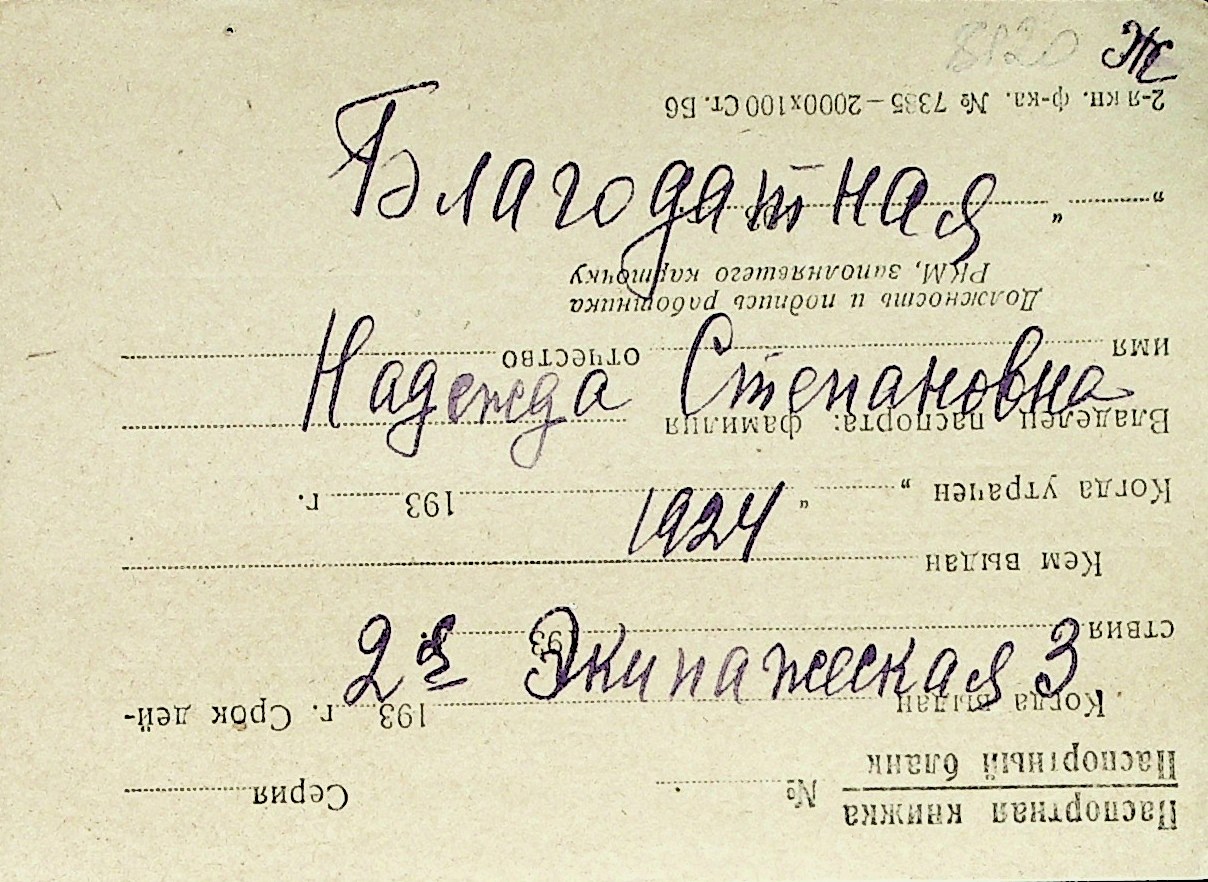 8120 Ж
Благодатная
Надежда Степановна
1924
2я Экипажеская 3
Паспортная книжка
Паспортный бланк
№ Серия
Когда выдан 193 г. Срок дей-
ствия 193
Кем выдан
Когда утрачен „ “ 193 г.
Владелец паспорта: фамилия
имя отчество
Должность и подпись работника
РКМ, заполнявшего карточку
„ “
2-я кн. ф-ка. № 7385 – 2000х100 Ст. Б6